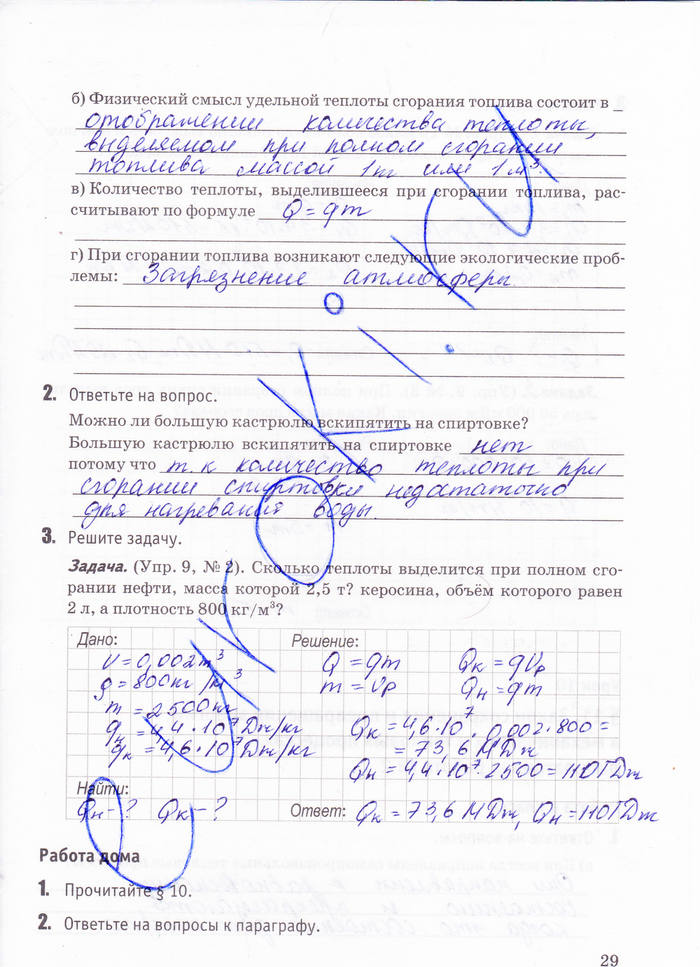 б) Физический смысл удельной теплоты сгорания топлива состоит в
отображении количества теплоты,
выделяемом при полном сгорании
топлива массой 1кг или 1м³.
в) Количество теплоты, выделившееся при сгорании топлива, рас-
считывают по формуле Q = qm
г) При сгорании топлива возникают следующие экологические проб-
лемы: Загрязнение атмосферы.
2. Ответьте на вопрос.
Можно ли большую кастрюлю вскипятить на спиртовке?
Большую кастрюлю вскипятить на спиртовке нет
потому что т.к количество теплоты при
сгорании спиртовки недостаточно
для нагревания воды.
3. Решите задачу.
Задача. (Упр. 9, № 2). Сколько теплоты выделится при полном сго-
рании нефти, масса которой 2,5 т? керосина, объём которого равен
2 л, а плотность 800 кг/м³?
Дано: Решение:
V = 0,002 м³ Q = qm Qк = qVρ
ρ = 800 кг/м³ m = Vρ Qн = qm
m = 2500кг
qн = 4,4·10⁷ Дж/кг Qк = 4,6·10⁷·0,002·800 =
qк = 4,6·10⁷ Дж/кг = 73,6 МДж
Qн = 4,4·10⁷·2500 = 110ГДж
Найти:
Qн - ? Qк - ? Ответ: Qк = 73,6 МДж, Qн = 110ГДж
Работа дома
1. Прочитайте § 10.
2. Ответьте на вопросы к параграфу.
29